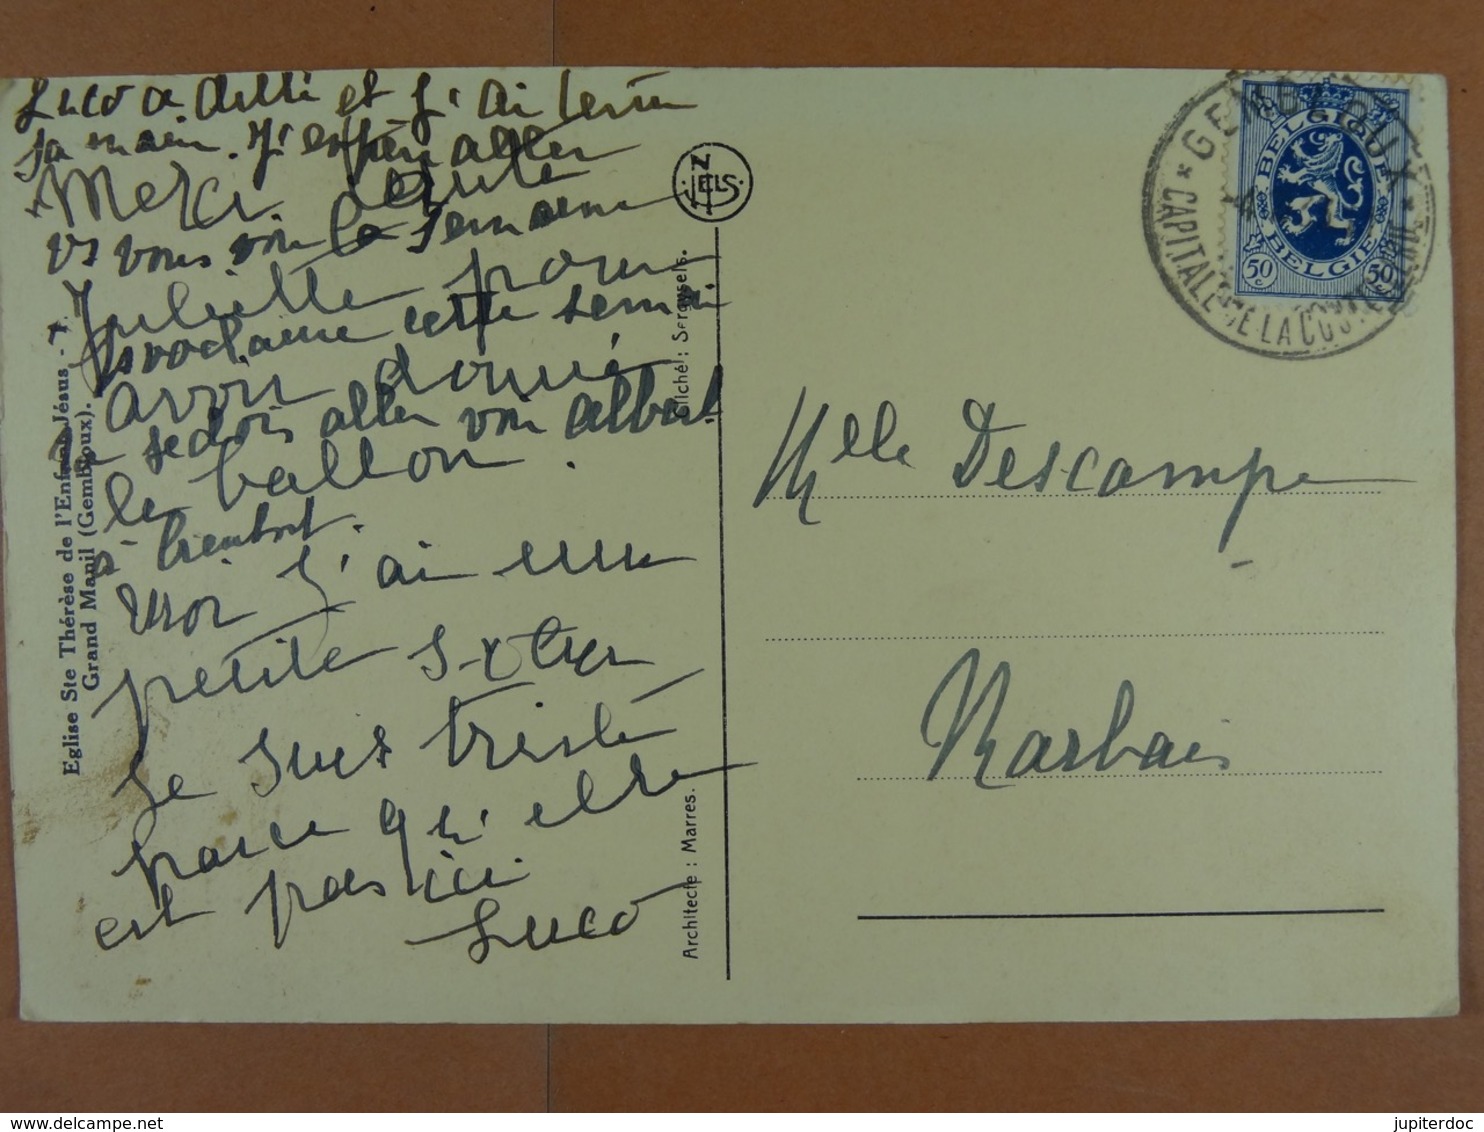 Luco a dicté et j'ai tenu
sa main. J'espère aller
Merci
vs vous voir la semaine
Juliette pour
prochaine cette semai
avoir donné
je dois aller voir Albert
le ballon.
à bientôt.
moi j'ai une
petite
Je suis triste
parce qu'elle
est pas ici
Luco
Eglise Ste Thérèse de l'Enfant Jésus -
Grand Manil (Gembloux).
NELS
Cliché: Sergysels.
Architecte : Marres.
GEMBLOUX
CAPITALE DE LA COUTELLERIE
BELGIQUE
BELGIE
50 c
50 c
Mlle Descampe
Marbais
jupiterdoc